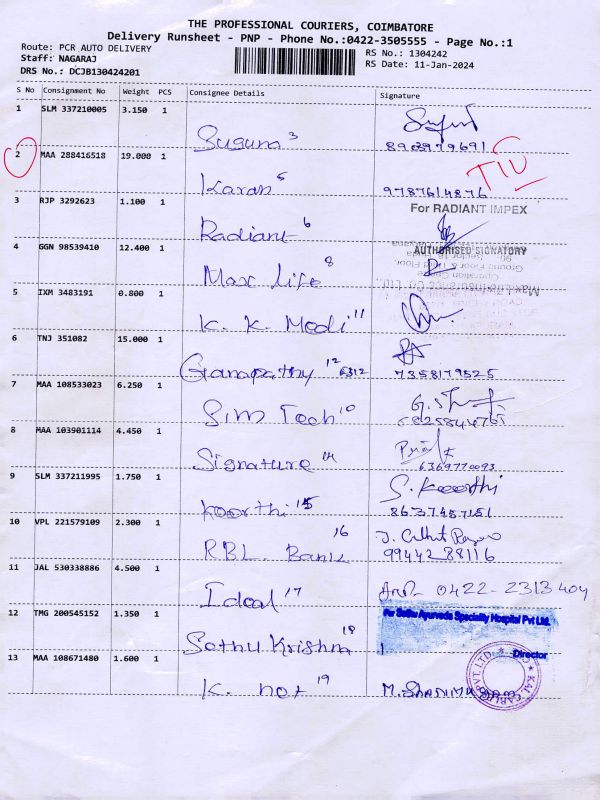 THE PROFESSIONAL COURIERS, COIMBATORE
Delivery Runsheet - PNP - Phone No.:0422-3505555 - Page No.:1
Route: PCR AUTO DELIVERY
RS No.: 1304242
Staff: NAGARAJ
RS Date: 11-Jan-2024
DRS No.: DCJB130424201
S No Consignment No Weight PCS Consignee Details Signature
1 SLM 337210005 3.150 1
Suguna 3 8939979691
2 MAA 288416518 19.000 1
Karan 5 9787614876
3 RJP 3292623 1.100 1
For RADIANT IMPEX
Radiant 6
4 GGN 98539410 12.400 1
AUTHORISED SIGNATORY
Max life 8
5 IXM 3483191 0.800 1
K. K. Modi 11
6 TNJ 351082 15.000 1
Ganapathy 12 6312 7358179525
7 MAA 108533023 6.250 1
Sim Tech 10
8 MAA 103901114 4.450 1
Signature 14 6369770093
9 SLM 337211995 1.750 1
S. Koorthi
Koorthi 15 8637457151
10 VPL 221579109 2.300 1
RBL Bank 16 9944288116
11 JAL 530338886 4.500 1
Ideal 17 0422-2313404
12 TMG 200545152 1.350 1
For Sathu Ayurveda Speciality Hospital Pvt Ltd.
Sathu Krishna 18
Director
13 MAA 108671480 1.600 1
K. not 19